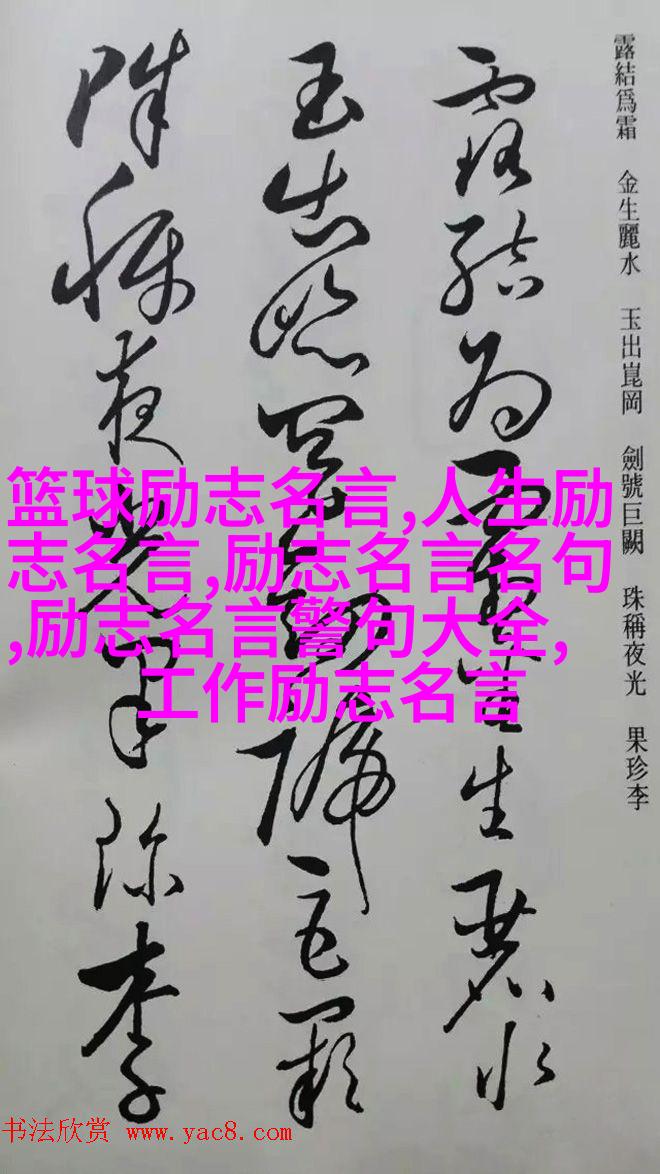 露結爲霜 金生麗水 玉出崑岡 劍號巨闕 珠稱夜光 果珍李
露結為霜金生麗水
玉出崑岡劍號巨闕
珠稱夜光果珍李
篮球励志名言,人生励
志名言,励志名言名句
,励志名言警句大全,
工作励志名言
书法欣赏 www.yac8.com